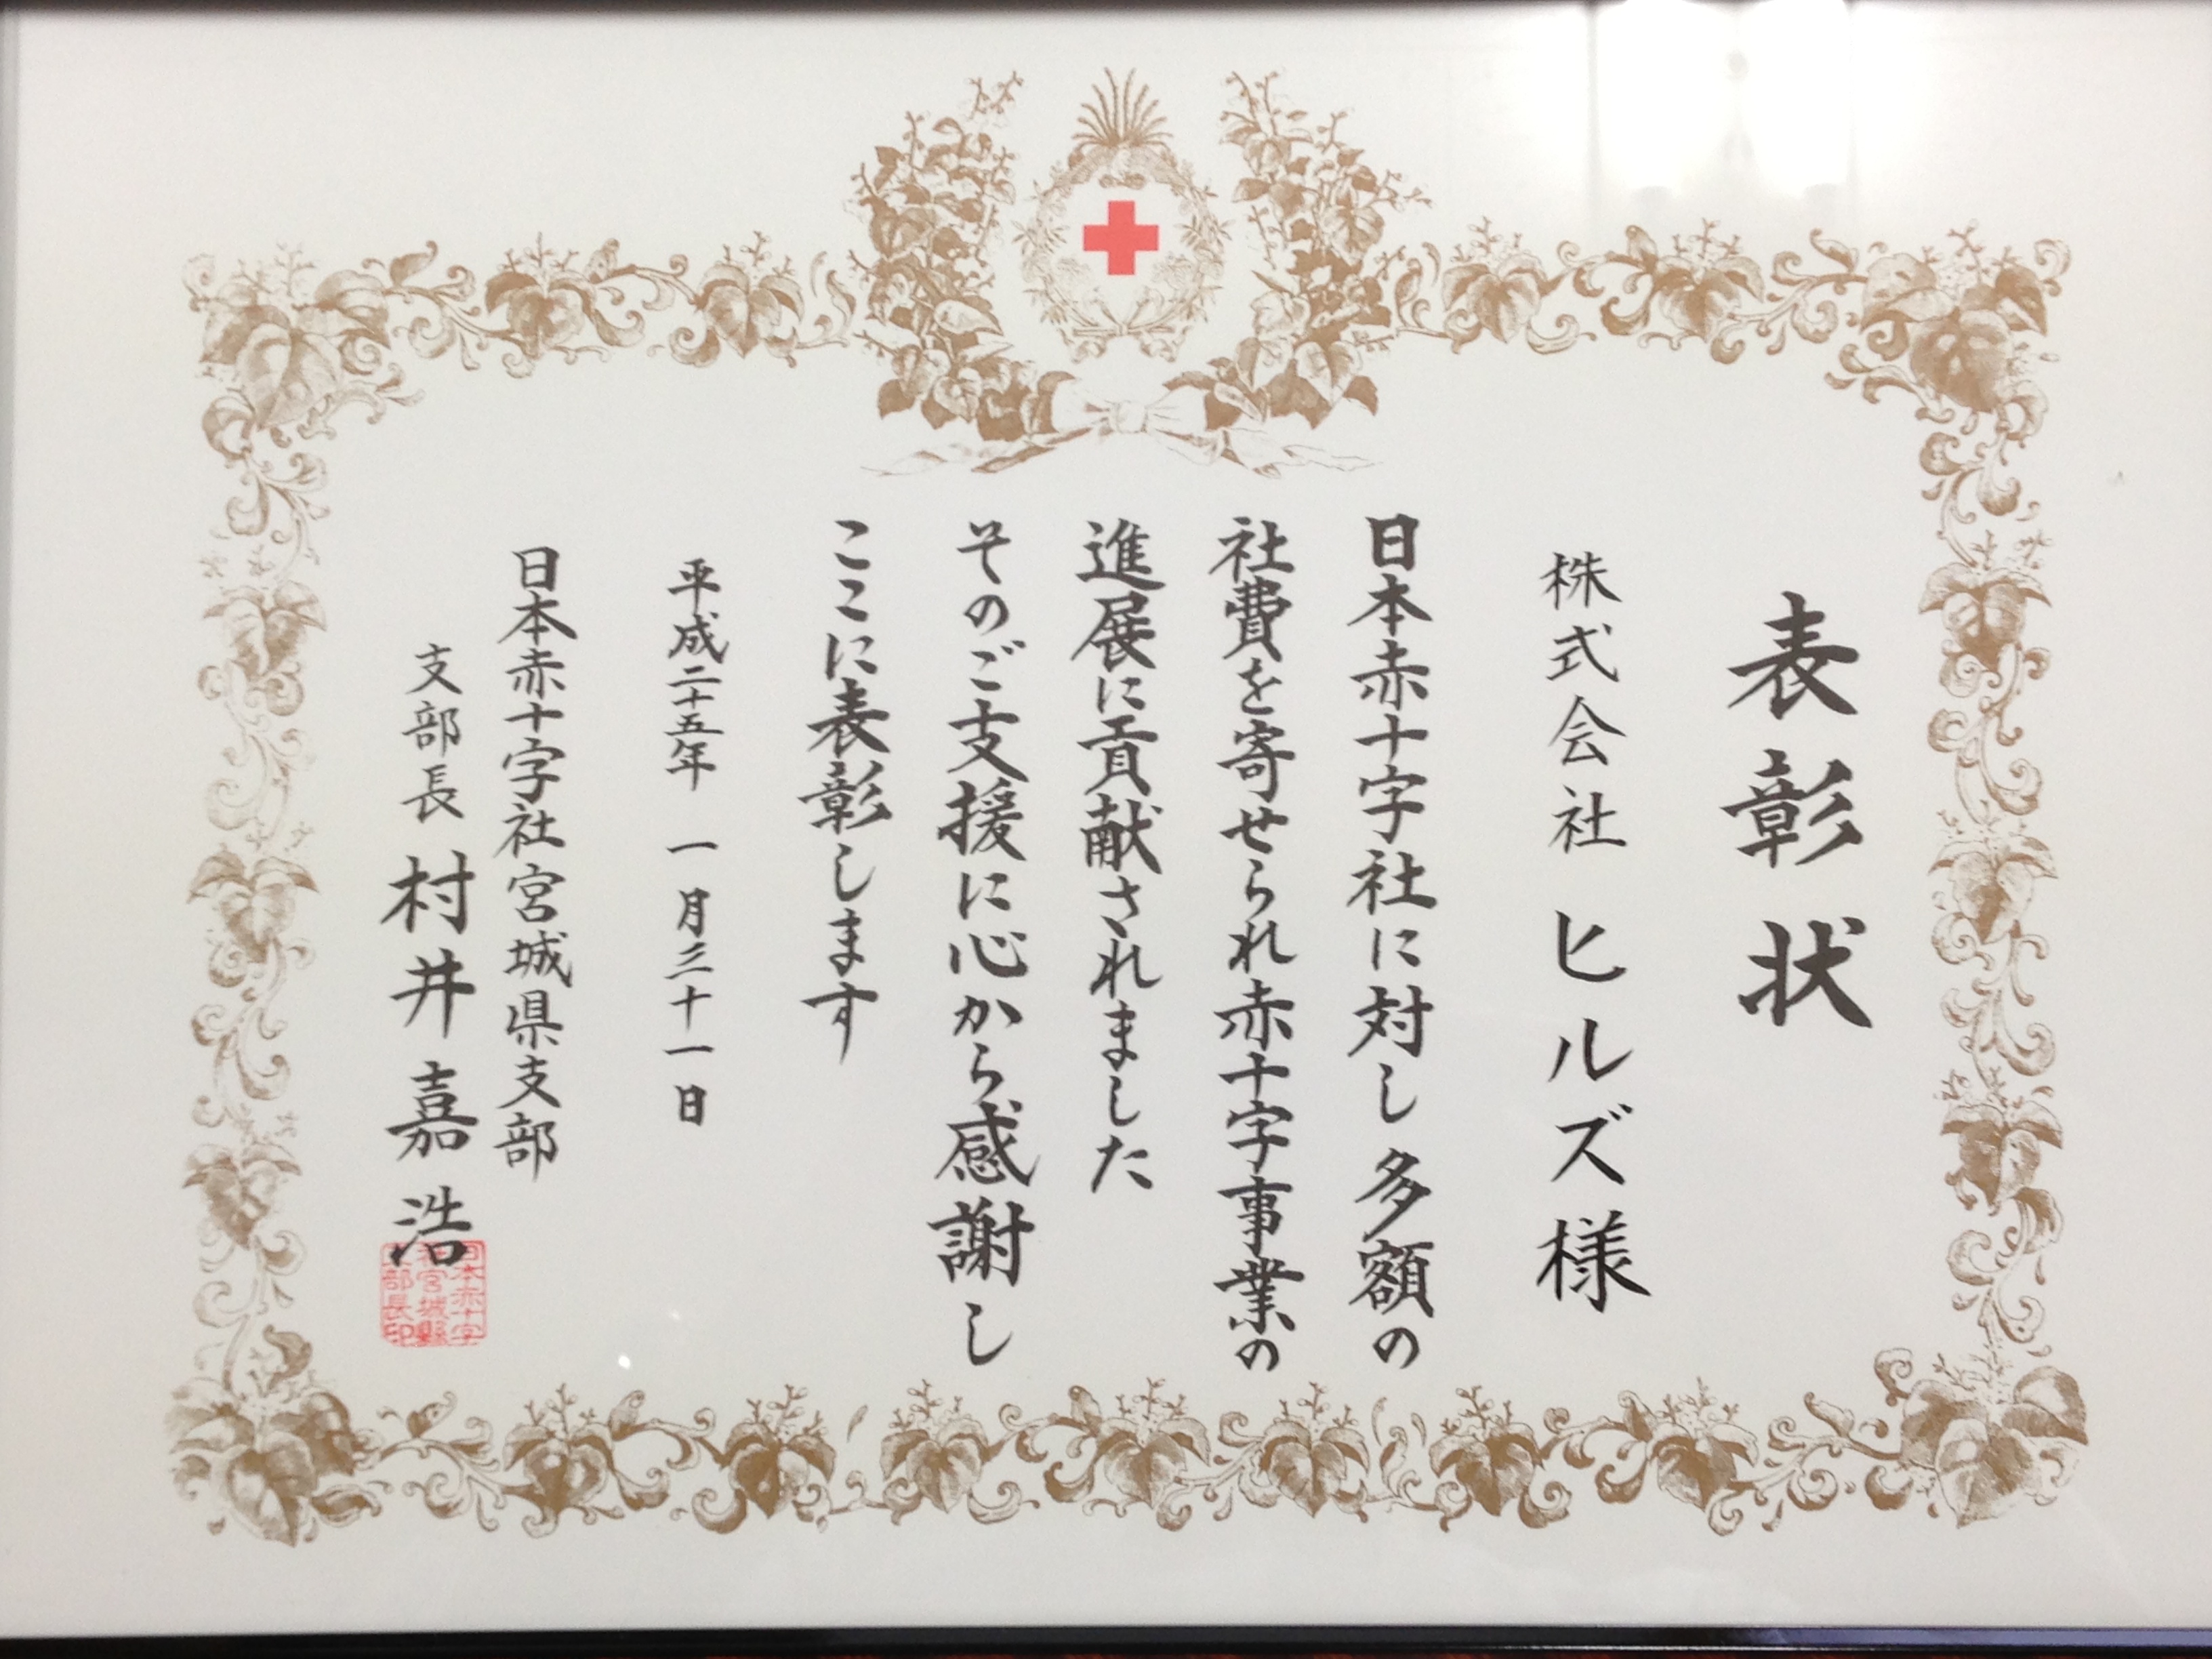 表彰状
株式会社ヒルズ様
日本赤十字社に対し多額の
社費を寄せられ赤十字事業の
進展に貢献されました
そのご支援に心から感謝し
ここに表彰します
平成二十五年 一月三十一日
日本赤十字社宮城県支部
支部長 村井嘉浩
日本赤十字
社宮城縣
支部長印